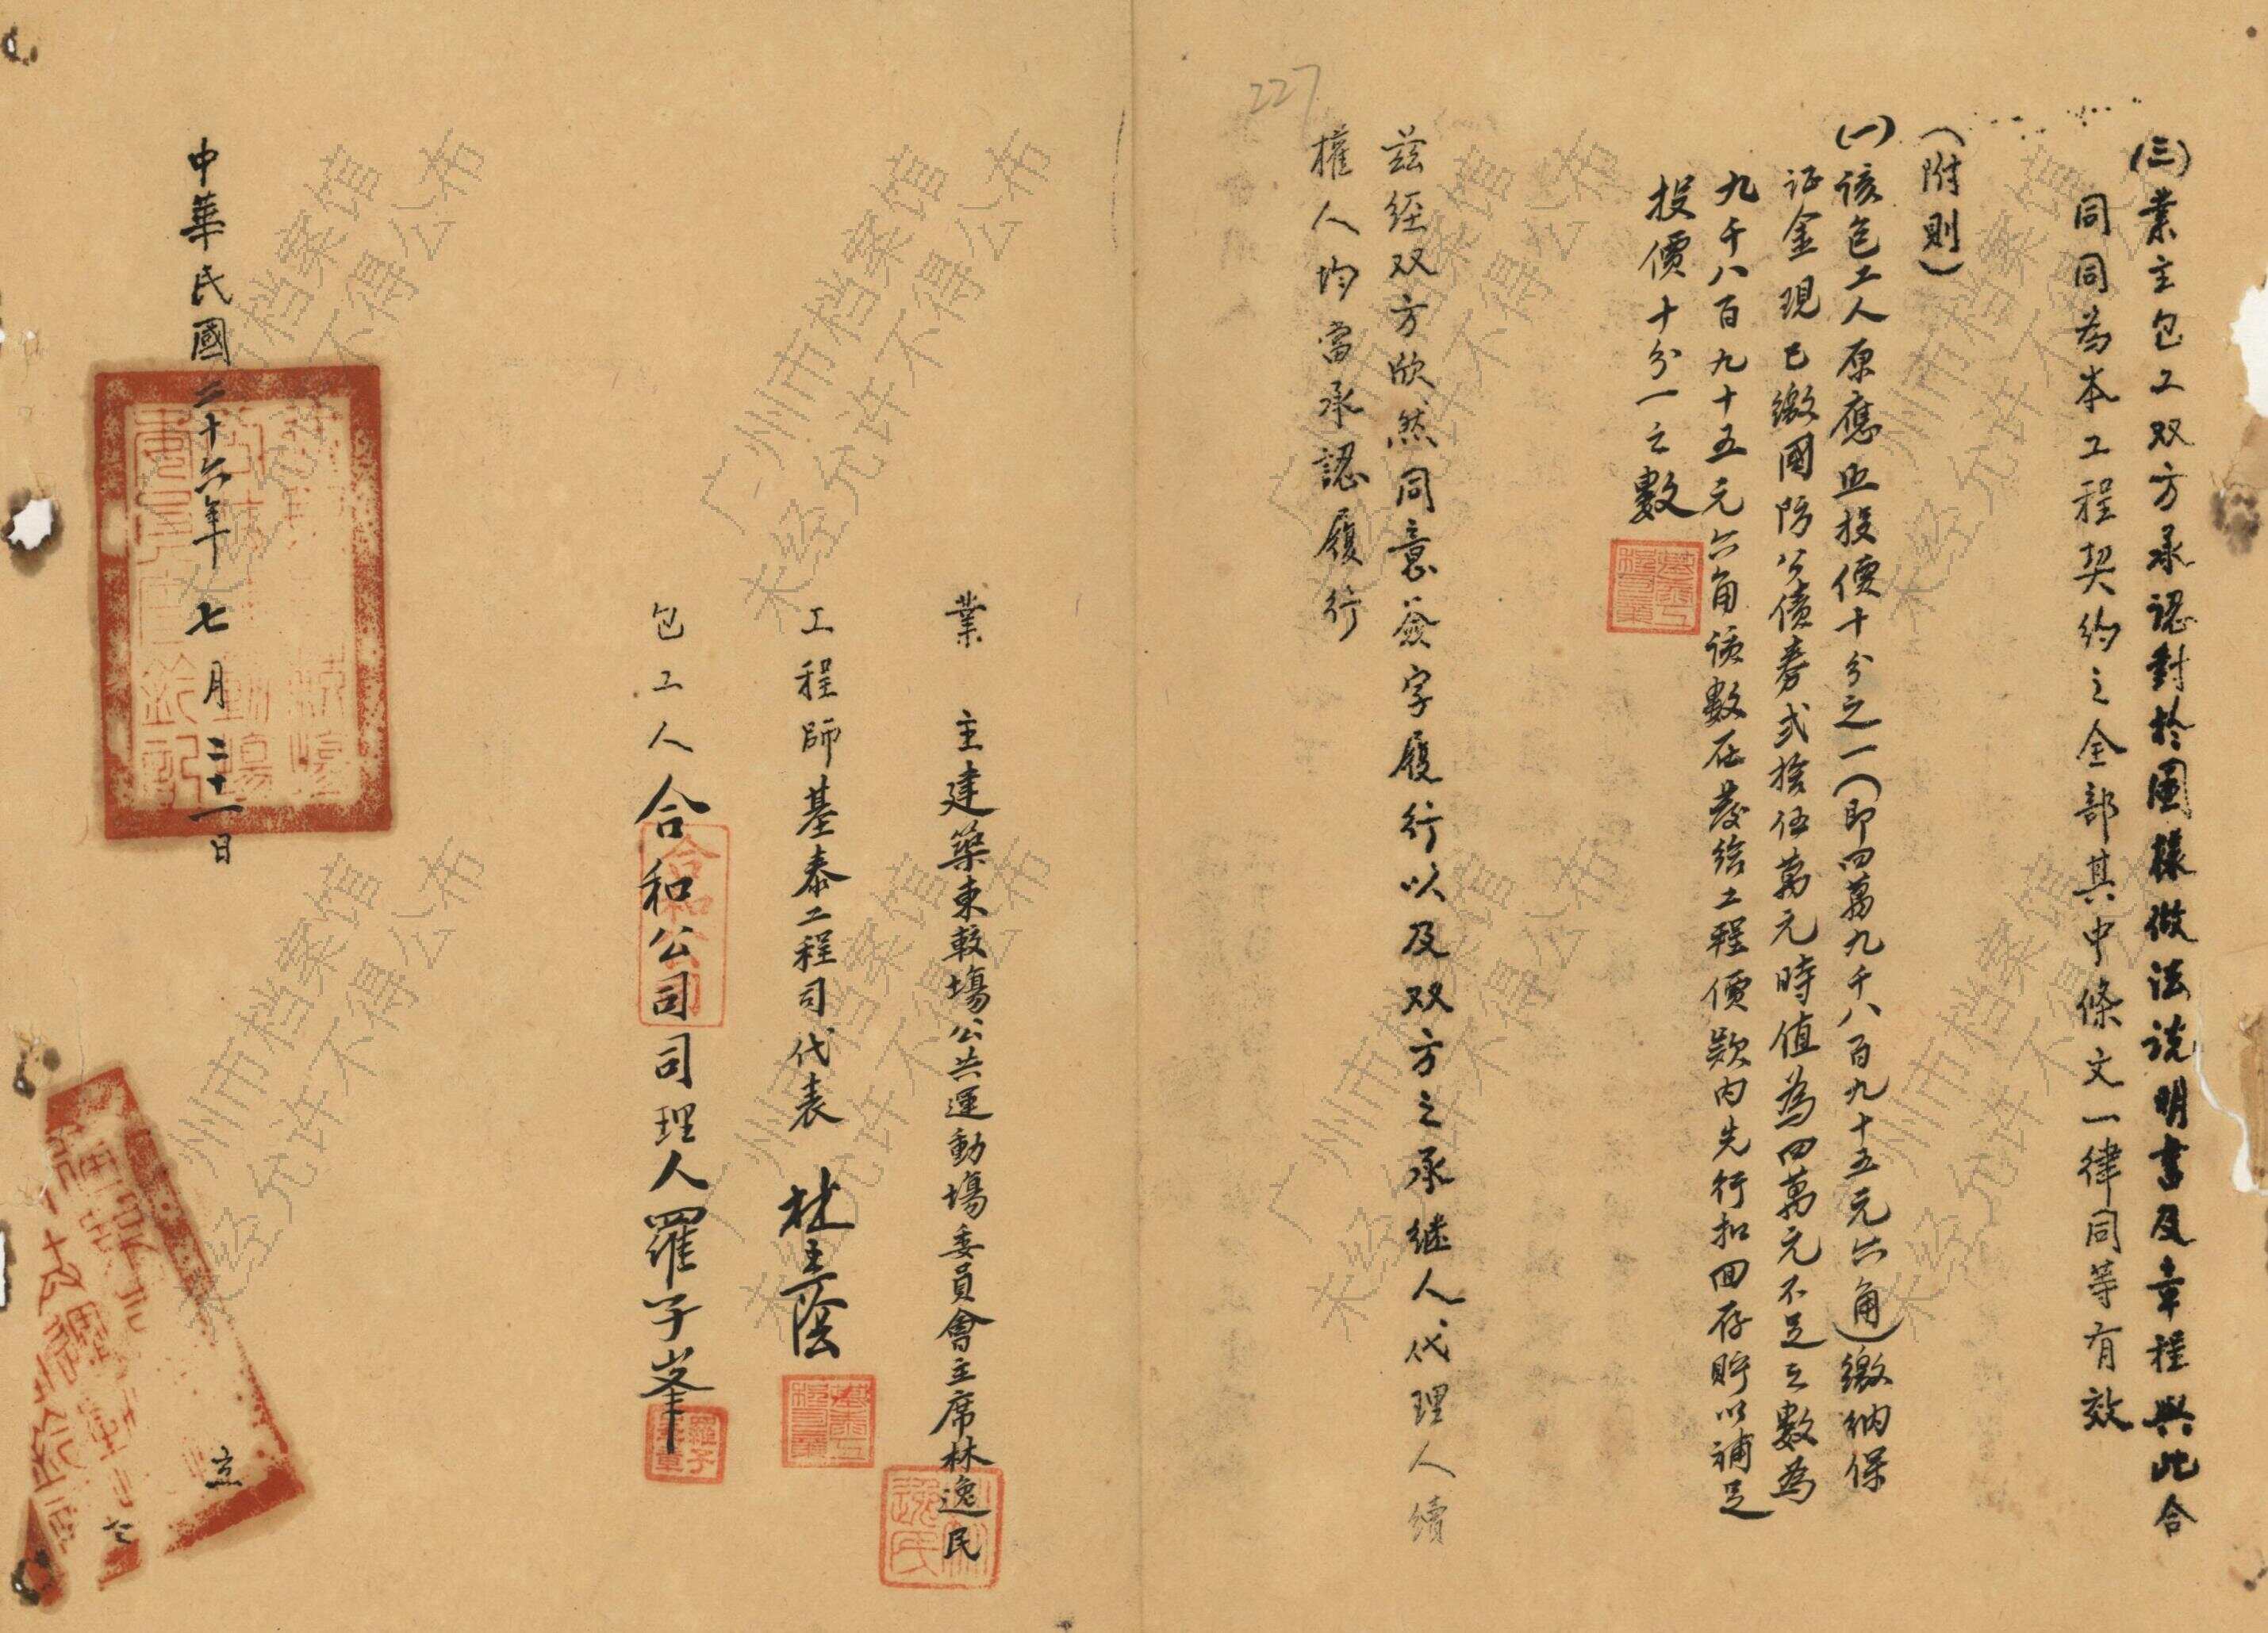 227
(三)業主包工双方承認對於圖樣做法說明書及章程與此合
同同為本工程契約之全部其中條文一律同等有效
(附則)
(一)該包工人原應照投價十分之一(即四萬九千八百九十五元六角)繳納保
证金現已繳國防公债券弍拾伍萬元時值為四萬元不足之數為
九千八百九十五元六角該數在發給工程價款内先行扣回存貯以補足
投價十分一之數
茲經双方欣然同意簽字履行以及双方之承继人代理人續
權人均當承認履行
業 主建築東較場公共運動場委員會主席林逸民
工程師基泰工程司代表
包工人合和公司司理人羅子峯
中華民國二十六年七月二十一日
立
广州市档案馆
未经允许不得公布